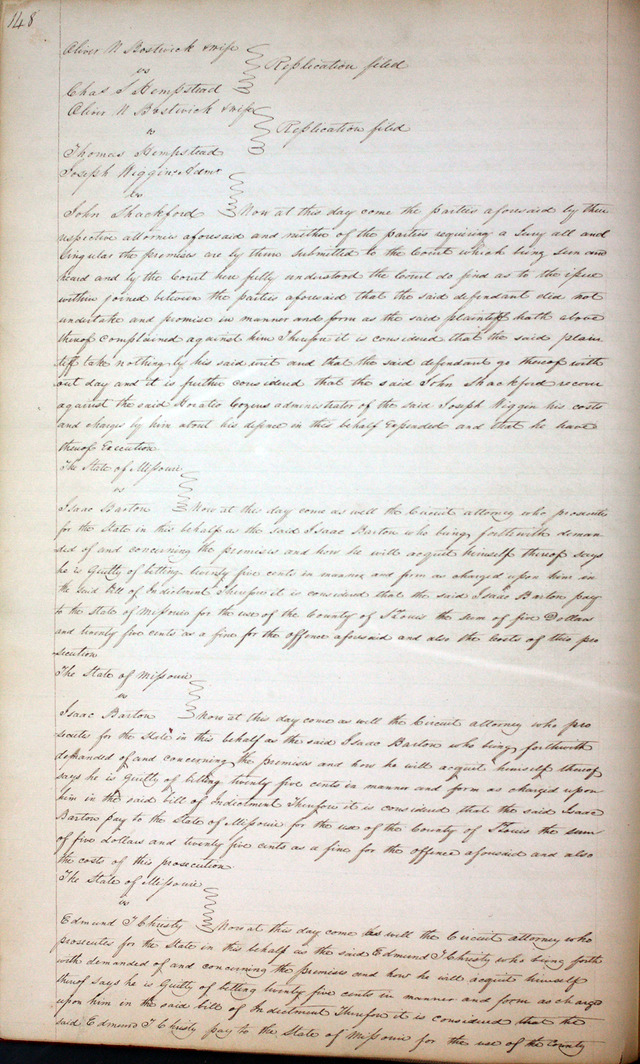 148
Oliver N Bostwick & wife
vs
Replication filed
Chas S Hempstead
Oliver N Bostwick & wife
vs
Replication filed
Thomas Hempstead
Joseph Wiggins Admr
vs
John Shackford Now at this day come the parties aforesaid by their
respective attornies aforesaid and neither of the parties requiring a Jury all and
Singular the premises are by them submitted to the Court which being seen and
heard and by the Court here fully understood the Court do find as to the issue
within joined between the parties aforesaid that the said defendant did not
undertake and promise in manner and form as the said plaintiff hath above
thereof complained against him Therefore it is considered that the said plain
tiff take nothing by his said writ and that the said defendant go thereof with
out day and it is further considered that the said John Shackford recover
against the said Horatio Cozens administrator of the said Joseph Wiggin his costs
and charges by him about his defence in this behalf Expended and that he have
thereof Execution
The State of Missouri
vs
Isaac Barton Now at this day come as well the Circuit attorney who prosecutes
for the State in this behalf as the said Isaac Barton who being forthwith deman
ded of and concerning the premises and how he will acquit himself thereof says
he is Guilty of betting twenty five cents in manner and form as charged upon him in
the said bill of Indictment Therefore it is considered that the said Isaac Barton pay
to the State of Missouri for the use of the County of St Louis the sum of five Dollars
and twenty five cents as a fine for the offence aforesaid and also the Costs of this pro
secution
The State of Missouri
vs
Isaac Barton Now at this day come as well the Circuit attorney who pro
secutes for the State in this behalf as the said Isaac Barton who being forthwith
demanded of and concerning the premises and how he will acquit himself thereof
says he is Guilty of betting twenty five cents in manner and form as charged upon
him in the said bill of Indictment Therefore it is considered that the said Isaac
Barton pay to the State of Missouri for the use of the County of St Louis the sum
of five dollars and twenty five cents as a fine for the offence aforesaid and also
the costs of this prosecution
The State of Missouri
vs
Edmund T Christy Now at this day come as well the Circuit attorney who
prosecutes for the State in this behalf as the said Edmund T Christy who being forth
with demanded of and concerning the premises and how he will acquit himself
thereof says he is Guilty of betting twenty five cents in manner and form as charge
upon him in the said bill of Indictment Therefore it is considered that the
said Edmund T Christy pay to the State of Missouri for the use of the County